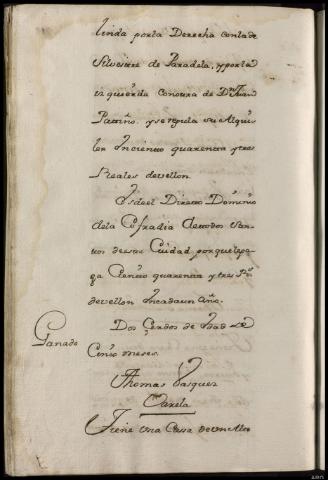 linda por la Derecha con la de
Silvestre de Paradela, y por la
izquierda con otra de Dn Juan
Patiño. y se regula su Alqui-
ler en ciento quarenta y tres
Reales de vellon.
Es de el Directo Dominio
de la Cofradia de todos San-
tos de esa Ciudad, por que le pa-
ga Ciento quarenta y tres Rs
de vellon En cada un Año.
Ganado
Dos Cerdos de Edad de
Cinco meses.
Thomas Vasquez
Varela
Tiene una Casa de un Alto